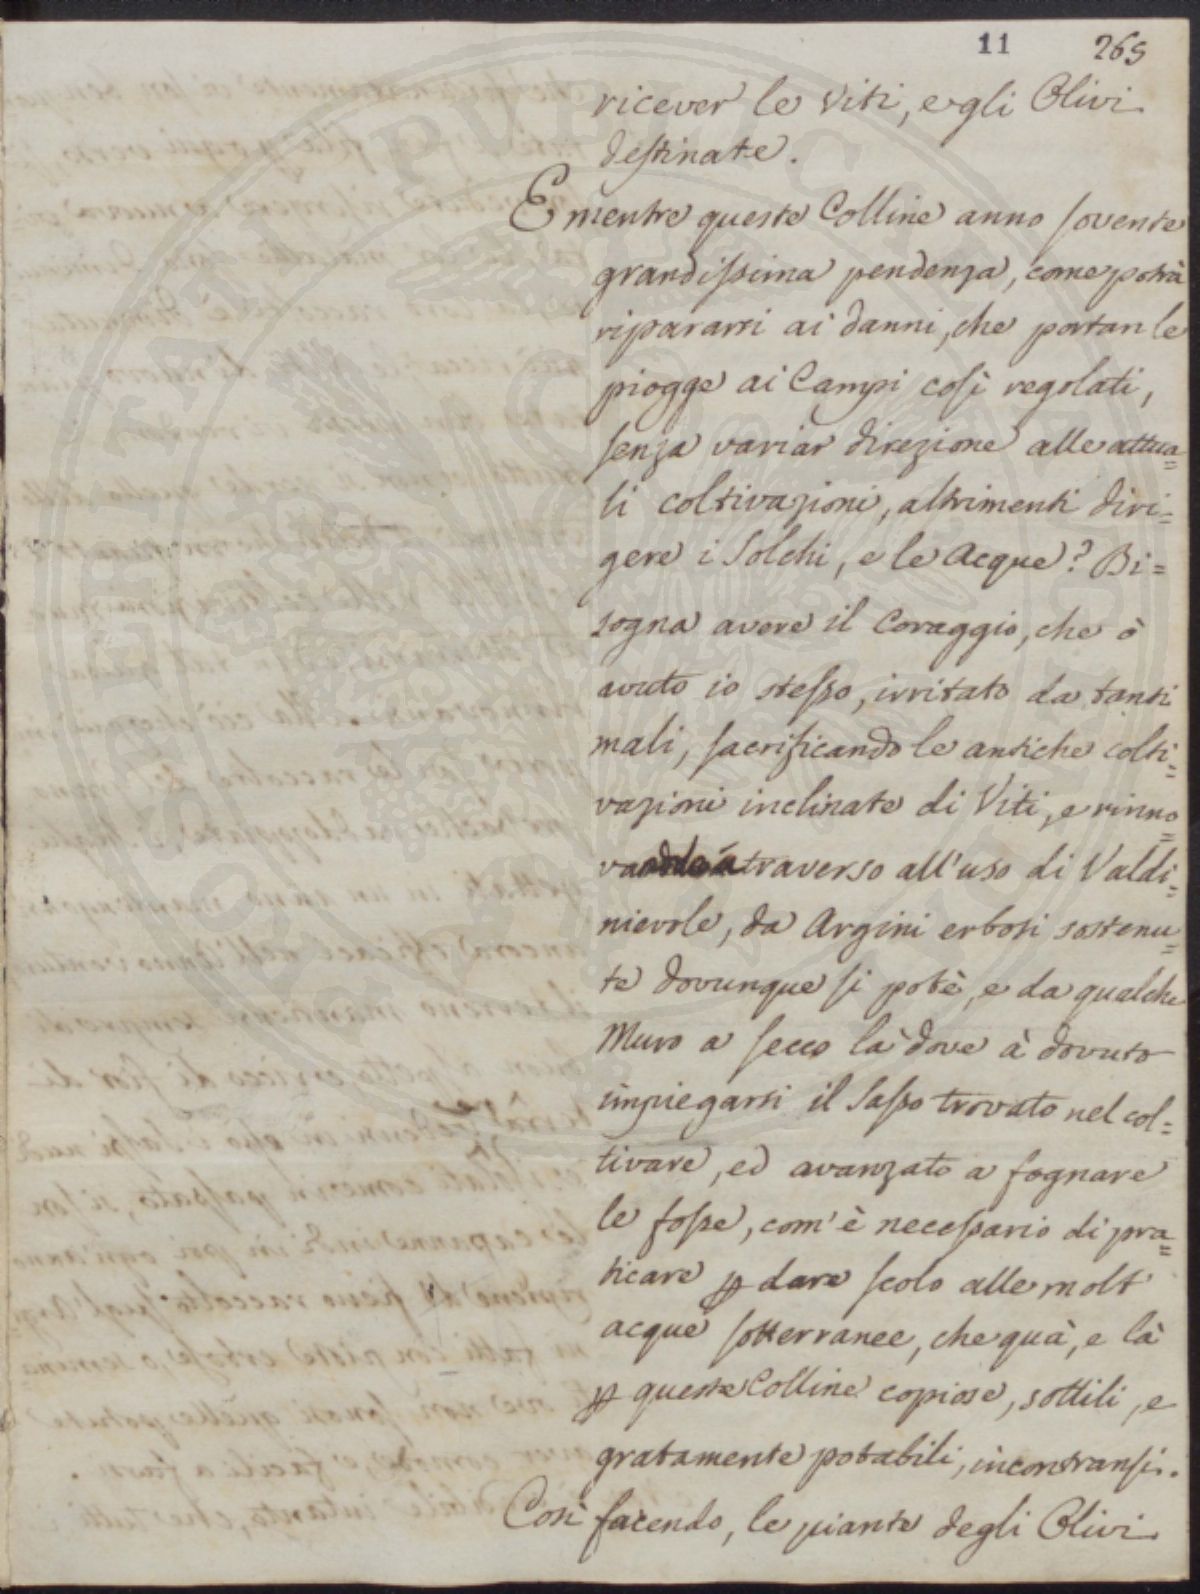 11 265
ricever le Viti, e gli Olivi
destinate.
E mentre queste Colline anno sovente
grandissima pendenza, come potrà
ripararsi ai danni, che portan le
piogge ai Campi così regolati,
senza variar direzione alle attua=
li coltivazioni, altrimenti diri=
gere i Solchi, e le Acque? Bi=
sogna avere il Coraggio, che ò
avuto io stesso, irritato da tanti
mali, sacrificando le antiche colti=
vazioni inclinate di Viti, e rinno=
traverso all'uso di Valdi=
nievole, da Argini erbosi sostenu=
te dovunque si potè, e da qualche
Muro a secco là dove à dovuto
impiegarsi il Sasso trovato nel col=
tivare, ed avanzato a fognare
le fosse, com'è necessario di pra=
ticare ꝑ dare scolo alle molt
acque sotterranee, che quà, e là
ꝑ queste Colline copiose, sottili, e
gratamente potabili, incontransi.
Così facendo, le piante degli Olivi